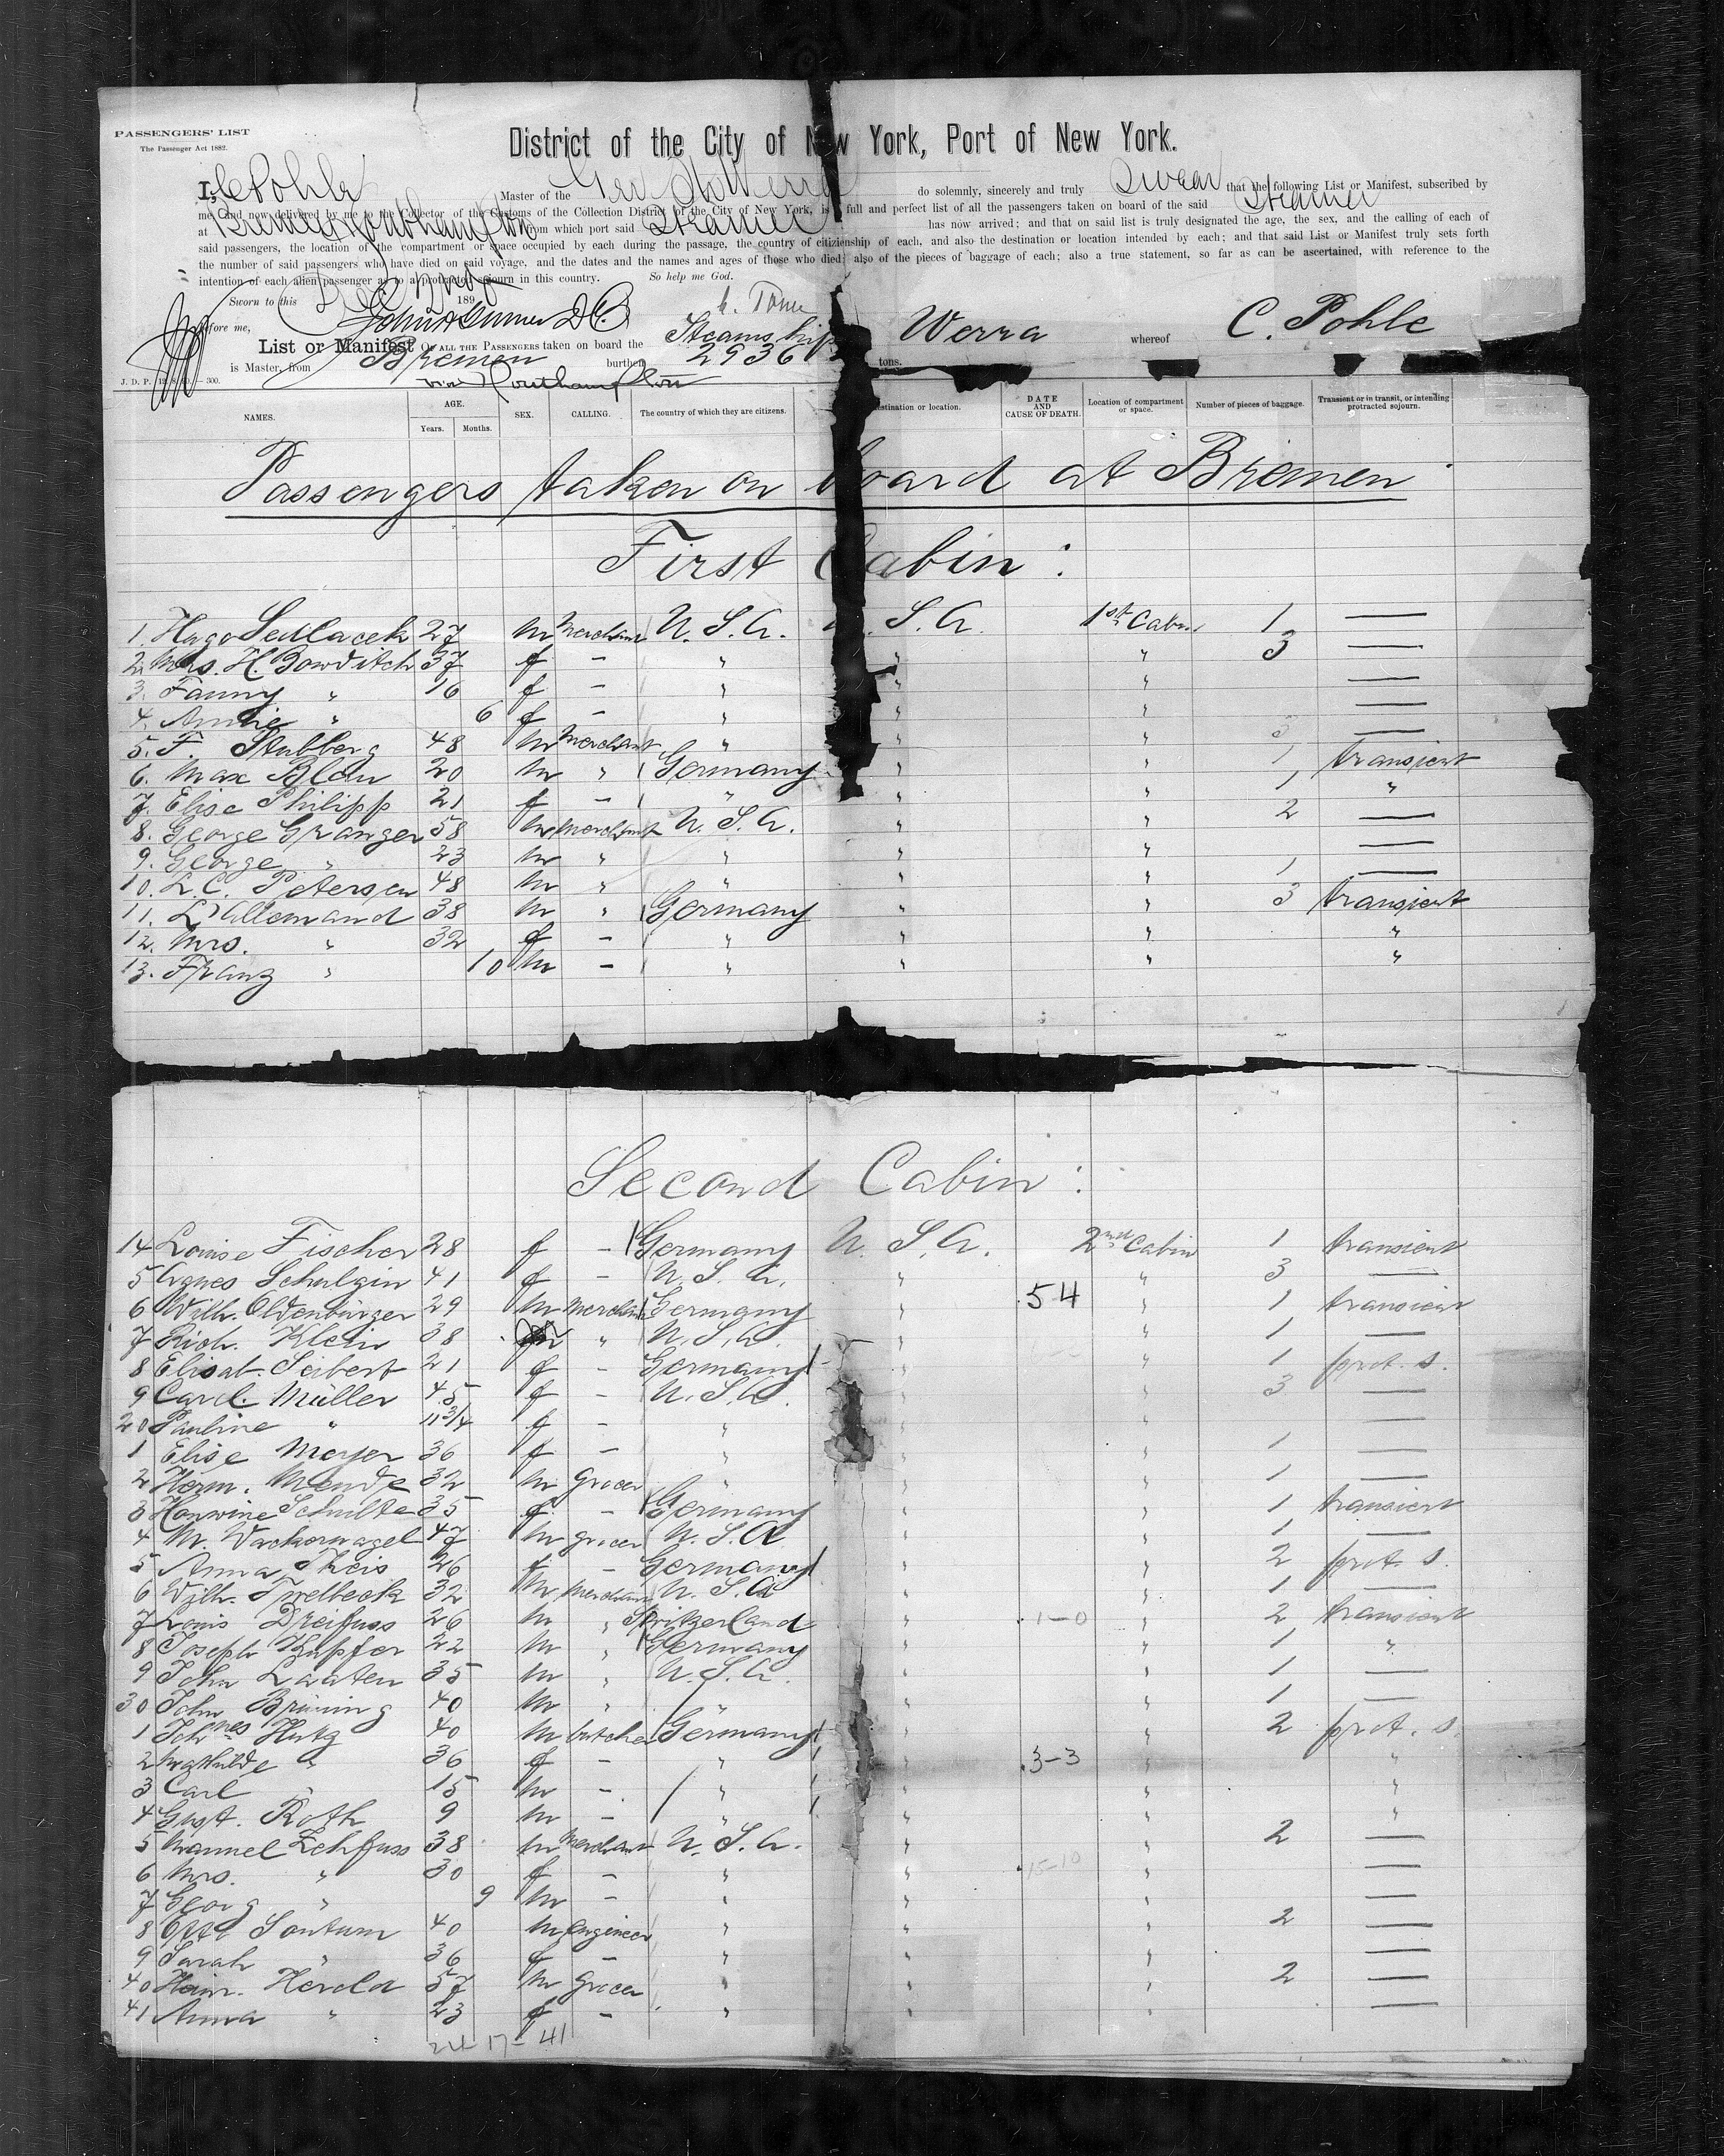 PASSENGERS' LIST
The Passenger Act 1882.
District of the City of New York, Port of New York.
I, C Pohle Master of the Ger Str Werra do solemnly, sincerely and truly Swear that the following List or Manifest, subscribed by
me, and now delivered by me to the Collector of the Customs of the Collection District of the City of New York, is a full and perfect list of all the passengers taken on board of the said Steamer
at Bremen Southampton from which port said Steamer has now arrived; and that on said list is truly designated the age, the sex, and the calling of each of
said passengers, the location of the compartment or space occupied by each during the passage, the country of citizienship of each, and also the destination or location intended by each; and that said List or Manifest truly sets forth
the number of said passengers who have died on said voyage, and the dates and the names and ages of those who died; also of the pieces of baggage of each; also a true statement, so far as can be ascertained, with reference to the
intention of each alien passenger as to a protracted sojourn in this country. So help me God.
Sworn to this 189
Before me,
List or Manifest OF ALL THE PASSENGERS taken on board the Steamship Werra whereof C. Pohle
is Master, from Bremen burthen 2936 tons.
via Southampton
J. D. P. 300.
NAMES. AGE. Years. Months. SEX. CALLING. The country of which they are citizens. Destination or location. DATE AND CAUSE OF DEATH. Location of compartment or space. Number of pieces of baggage. Transient or in transit, or intending protracted sojourn.
Passengers taken on board at Bremen
First Cabin:
1. Hugo Sedlacek 27 m Merchant U. S. A. U. S. A. 1st Cabin 1 —
2. Mrs. H. Bowditch 37 f — " " " 3 —
3. Fanny " 16 f — " " " —
4. Annie " 6 f — " " " —
5. F. Stubberg 48 m Merchant " " " 3 —
6. Max Blau 20 m " Germany " " 1 transient
7. Elise Philipp 21 f — " " " 1 "
8. George Granger 58 m Merchant U. S. A. " " 2 —
9. George " 23 m " " " " —
10. L. C. Petersen 48 m " " " " 1 —
11. L'Allemand 38 m " Germany " " 3 transient
12. Mrs. " 32 f — " " " "
13. Franz " 10 m — " " " "
Second Cabin:
14 Louise Fischer 28 f — Germany U. S. A. 2nd Cabin 1 transient
5 Agnes Schulgin 41 f — U. S. A. " " 3 —
6 Wilh. Oldenbürger 29 m Merchant Germany " 54 " 1 transient
7 Rich. Klein 38 m " U. S. A. " " 1 —
8 Elisab. Seibert 21 f — Germany " " 1 prot. s.
9 Carol. Müller 45 f — U. S. A. " " 3 —
20 Pauline " 11 3/4 f — " " " —
1 Elise Meyer 36 f — " " " 1 —
2 Herm. Mende 32 m Grocer " " " 1 —
3 Hanwine Schulte 35 f — Germany " " 1 transient
4 M. Wackernagel 47 m grocer U. S. A " " 1 —
5 Anna Theis 26 f — Germany " " 2 prot. s.
6 Wilh. Twelbeck 32 m Merchant U. S. A " " 1 —
7 Louis Dreifuss 26 m " Switzerland " 1-0 " 2 transient
8 Joseph Kupfer 22 m " Germany " " 1 "
9 John Laaten 35 m " U. S. A. " " 1 —
30 John Brüning 40 m " " " " 1 —
1 Johnes Hutz 40 m butcher Germany " " 2 prot. s.
2 Mathilde " 36 f — " " 3-3 " "
3 Carl " 15 m — " " " "
4 Gust. Roth 9 m — " " " "
5 Manuel Zehfuss 38 m Merchant U. S. A. " " 2 —
6 Mrs. " 30 f — " " 15-10 " —
7 Georg " 9 m — " " " —
8 Otto Sontum 40 m engineer " " " 2 —
9 Sarah " 36 f — " " " —
40 Heinr. Herold 57 m Grocer " " " 2 —
41 Anna " 23 f — " " " —
24-17-41